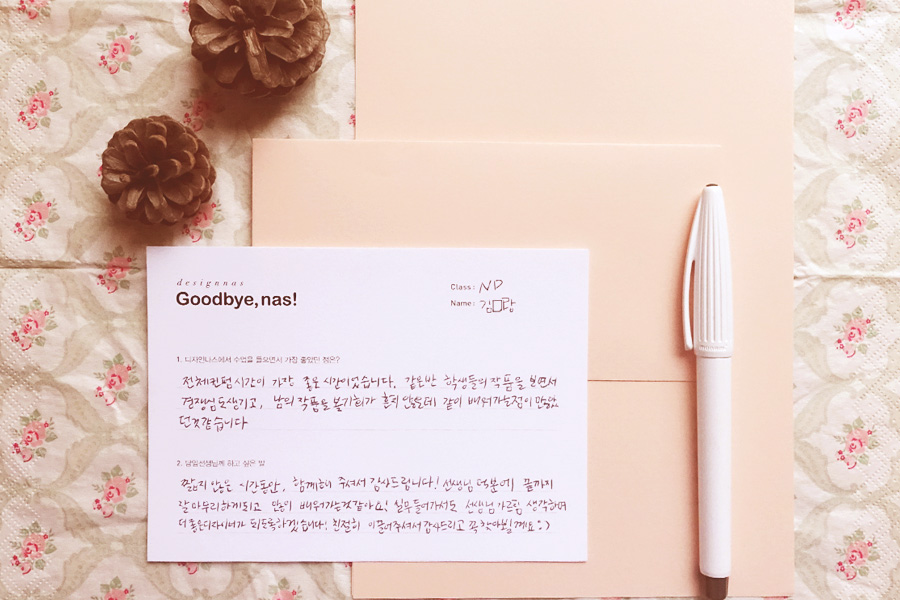 designnas
Goodbye, nas!
Class : ND
Name : 김□랑
1. 디자인나스에서 수업을 들으면서 가장 좋았던 점은?
전체컨펌시간이 가장 좋은 시간이었습니다. 같은반 학생들의 작품을 보면서
경쟁심도생기고, 남의 작품을 볼기회가 흔치 않을텐데 같이 배워가는점이 많았
던것같습니다
2. 담임선생님께 하고 싶은 말
짧지 않은 시간동안, 함께해 주셔서 감사드립니다! 선생님 덕분에 끝까지
잘마무리하게되고 많이 배워가는것같아요! 실무들어가서도 선생님 가르침 생각하며
더좋은디자이너가 되도록하겠습니다! 친절히 이끌어주셔서 감사드리고 꼭 찾아뵐게요 :)